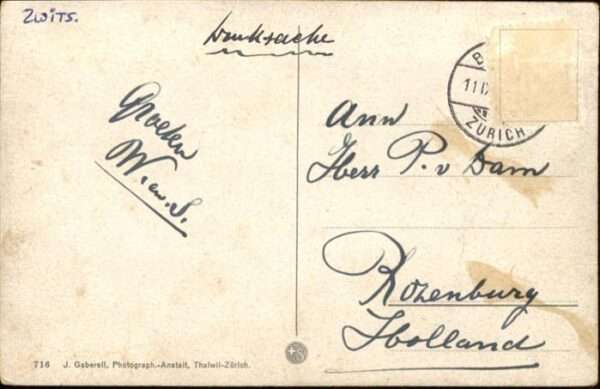 ZWITS.
Drucksache
Groeten
W. en S.
ZÜRICH
Ann
Herr P. v Dam
Rozenburg
Holland
716 J. Gaberell, Photograph.-Anstalt, Thalwil-Zürich.